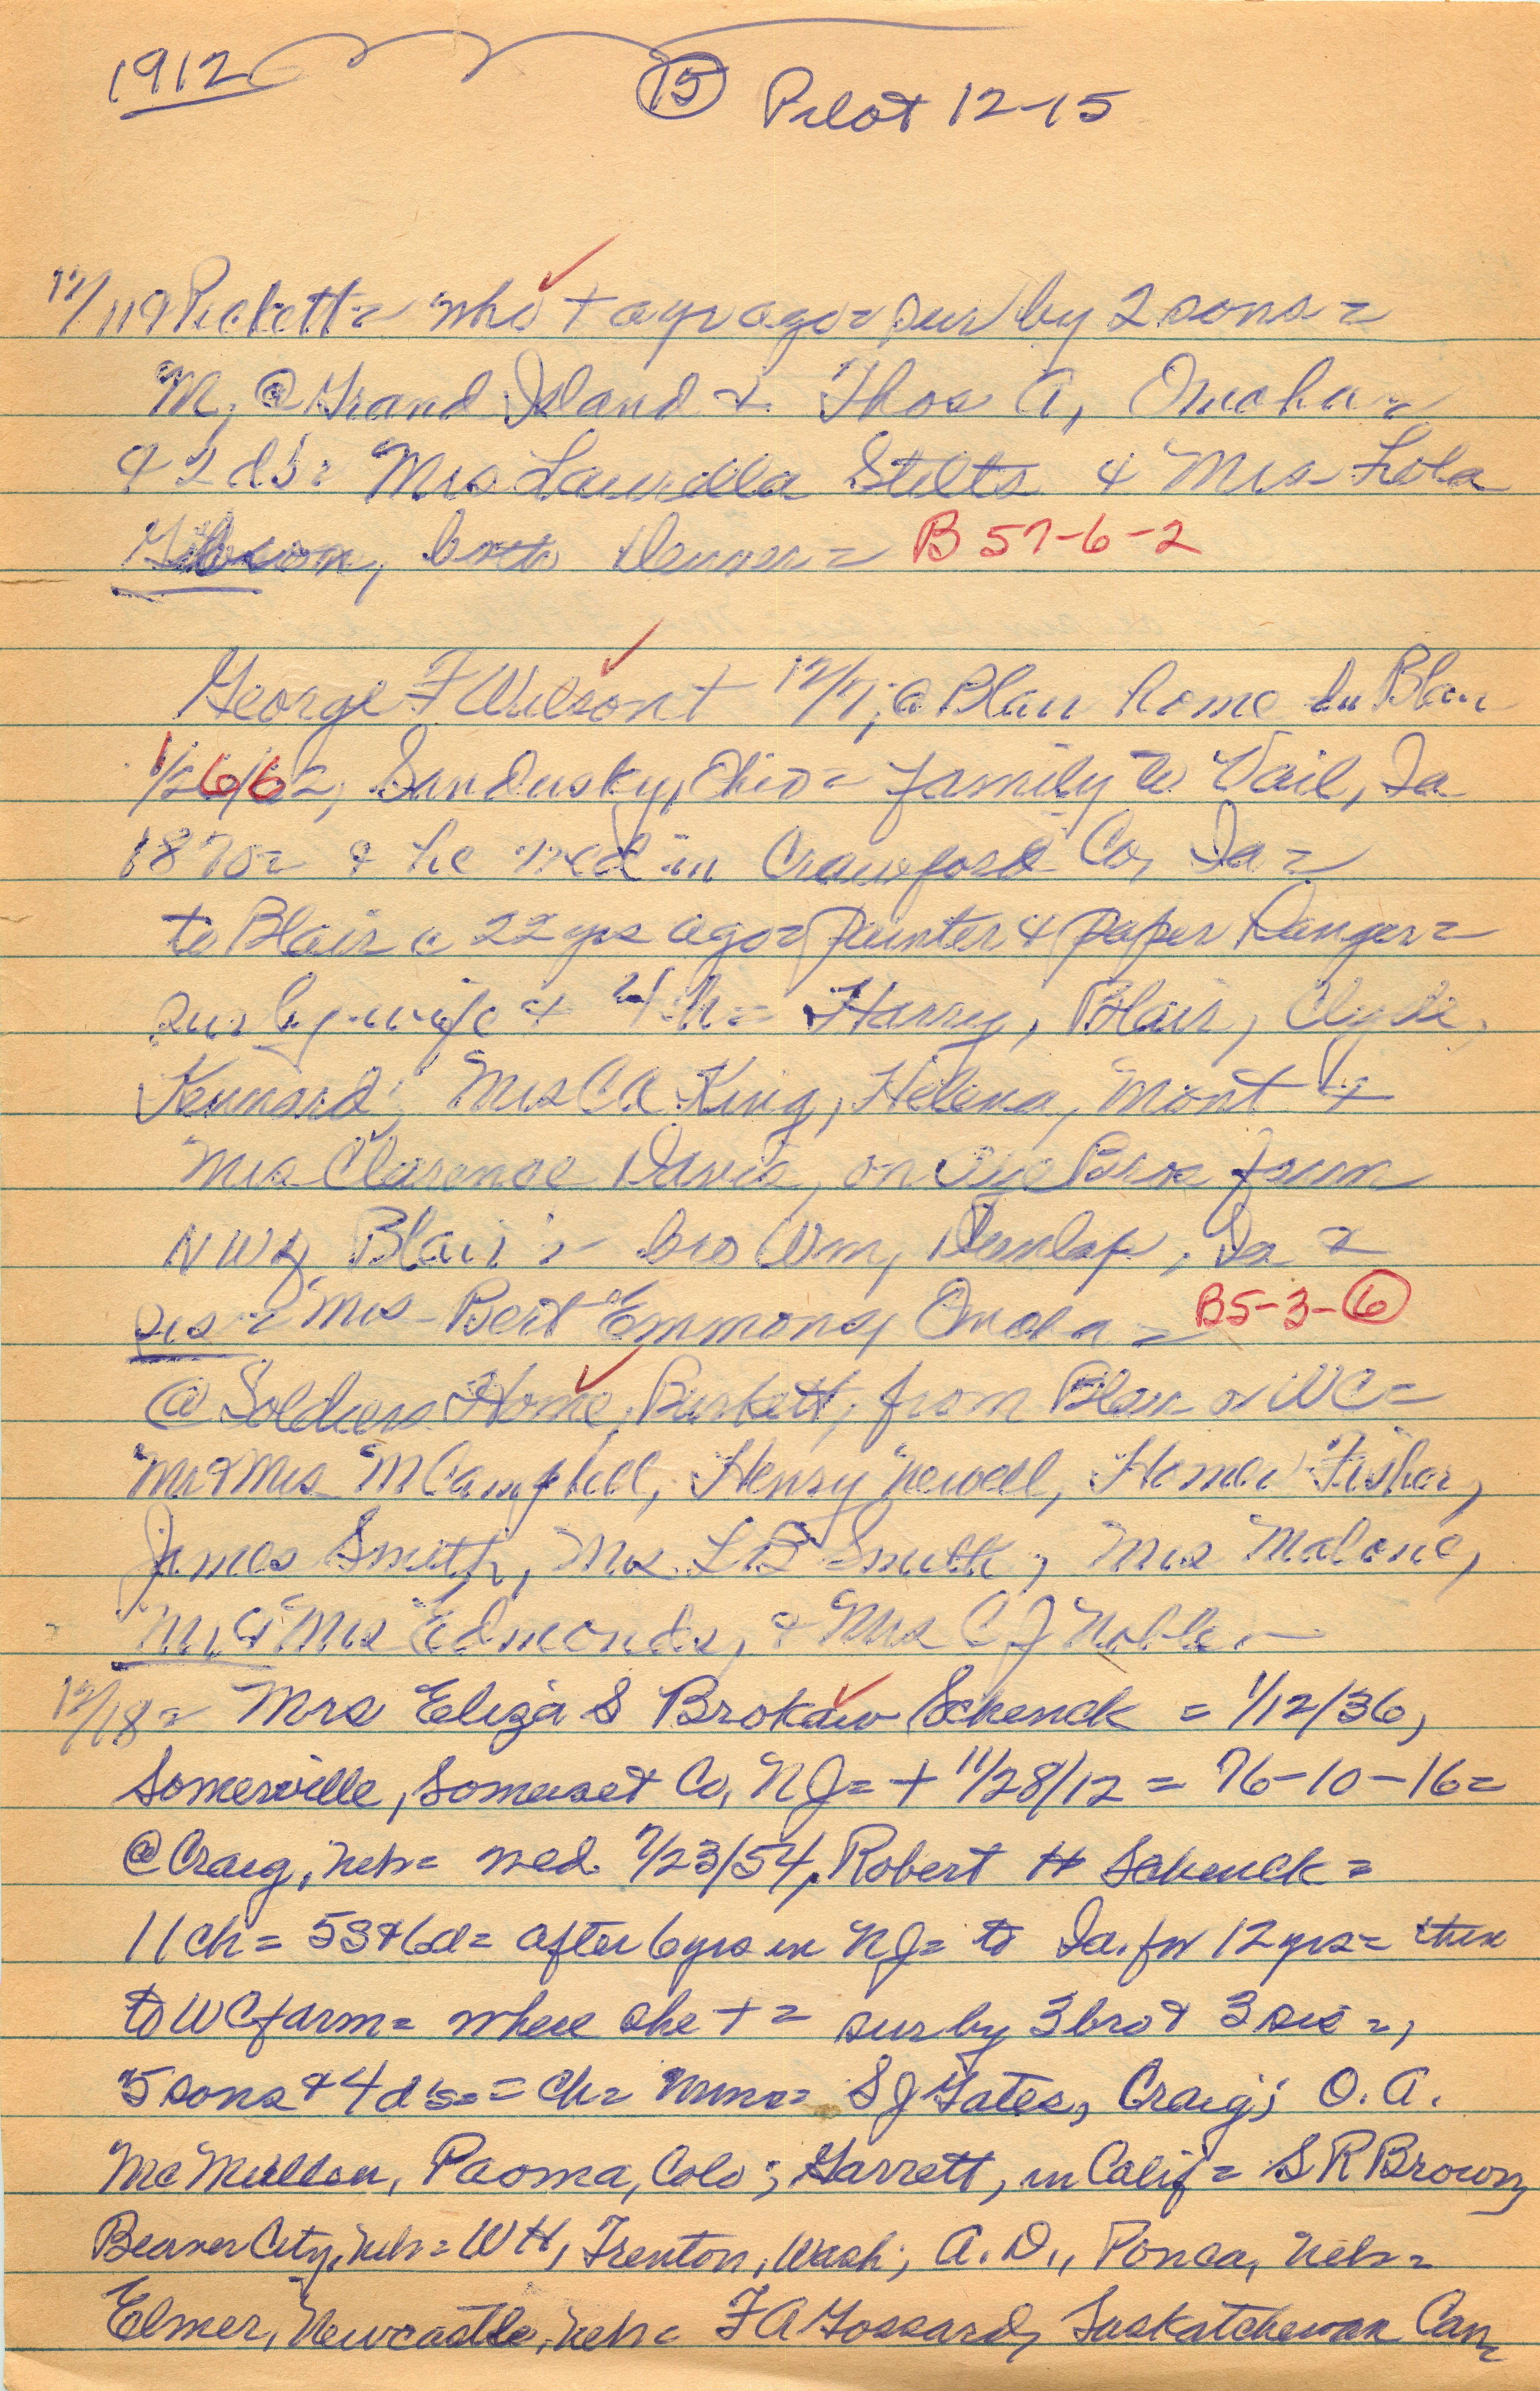 1912
15 Pilot 12-15
12/11 Pickett = who + a yr ago = sur by 2 sons =
M, @ Grand Island & Thos A, Omaha =
& 2 d's = Mrs Laurilla Stilts & Mrs Lola
Gibson, both Denver = B 57-6-2
George F Wilson + 12/7, @ Blair home Blair
1/26/62, Sandusky, Ohio = family to Vail, Ia
1870 = & he med in Crawford Co, Ia =
to Blair c 22 yrs ago = painter & paper hanger =
sur by wife & 4 ch = Harry, Blair, Clyde,
Kennard; Mrs C A King, Helena, Mont &
Mrs Clarence Davis, on Bros farm
NW of Blair = bro Wm, Dunlap, Ia =
sis = Mrs Bert Emmons, Omaha = B5-3-6
@ Soldiers Home, Burkett, from Blair or WC =
Mr & Mrs M Campbell, Henry Newell, Homer Fisher,
James Smith, Mrs L B Smith, Mrs Malone,
Mr & Mrs Edmonds, & Mrs C J Noble =
12/18 = Mrs Eliza S Brokaw Schenck = 1/12/36,
Somerville, Somerset Co, NJ = + 11/28/12 = 76-10-16 =
@ Craig, Neb = med 7/23/54, Robert H Schenck =
11 ch = 5 S & 6 d = after 6 yrs in NJ = to Ia. for 12 yrs = then
to WC farm = where she + = sur by 3 bro & 3 sis =,
5 sons & 4 d's = = ch = Mmes = S J Gates, Craig; O. A.
McMullen, Paoma, Colo; Garrett, in Calif = S R Brown,
Beaver City, Neb = W H, Trenton, Wash; A. D., Ponca, Neb =
Elmer, Newcastle, Neb = F A Gossard, Saskatchewan Can,